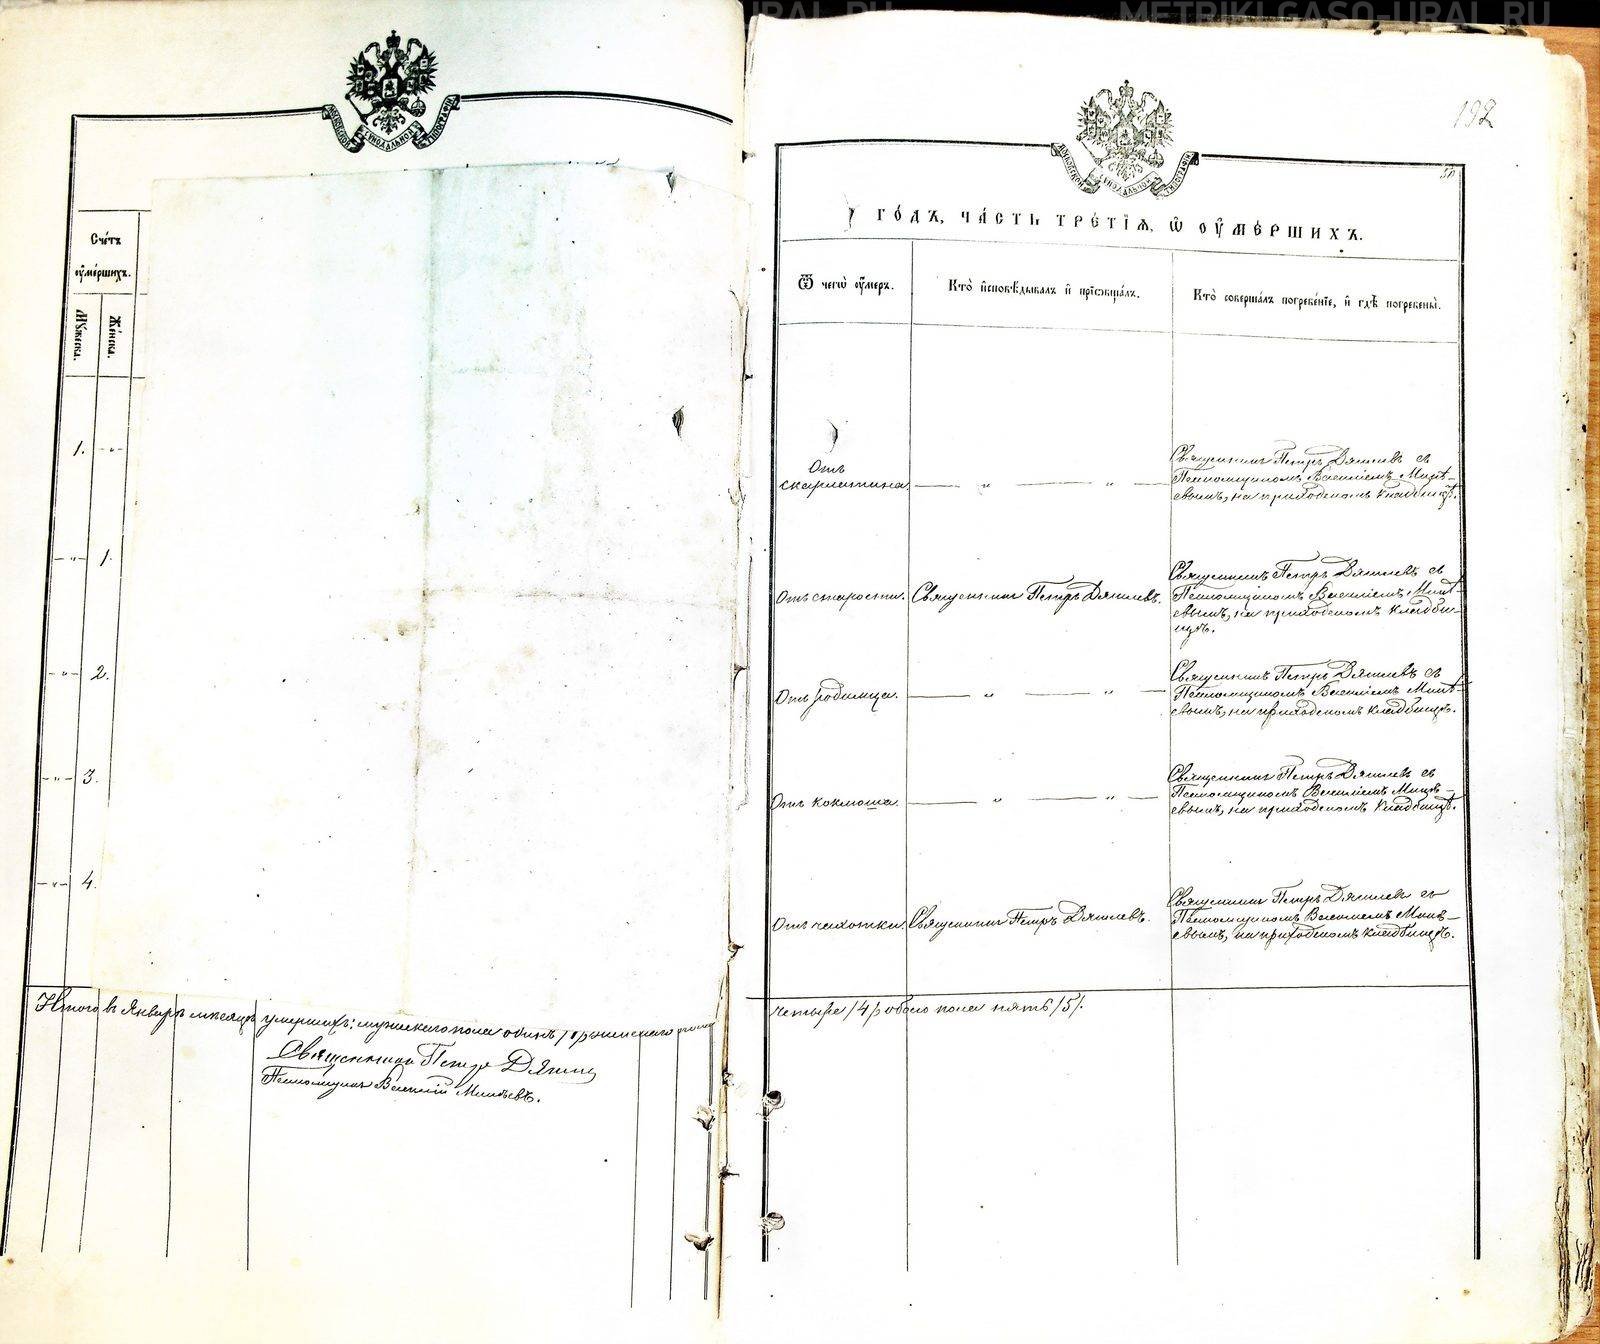 METRIKI.GASO-URAL.RU
МОСКОВСКОЙ СѴНОДАЛЬНОЙ ТИПОГРАФІИ
Сче́тъ
оу҆ме́ршихъ.
Му́жеска.
Же́нска.
1. - „ -
- „ - 1.
- „ - 2.
- „ - 3.
- „ - 4.
Итого въ Январѣ мѣсяцѣ умершихъ: мужескаго пола одинъ /1/ женскаго
Священникъ Петръ Дягилев
Псаломщикъ Василій
192
МОСКОВСКОЙ СѴНОДАЛЬНОЙ ТИПОГРАФІИ
ГО́ДЪ, ЧА́СТЬ ТРЕ́ТІѦ, Ѡ҆ ОУ҆МЕ́РШИХЪ.
Ѿ чегѡ̀ оу҆́меръ.
Кто̀ и҆сповѣ́дывалъ и҆ прїѡбща́лъ.
Кто̀ соверша́лъ погребе́нїе, и҆ гдѣ̀ погребены̀.
Отъ
скарлатина. — „ — „ —
Священникъ Петръ Дягилевъ съ
Псаломщикомъ Василіемъ
евымъ, на приходскомъ кладбищѣ.
Отъ старости.
Священникъ Петръ Дягилевъ.
Священникъ Петръ Дягилевъ съ
Псаломщикомъ Василіемъ
евымъ, на приходскомъ кладби-
щѣ.
Отъ родимца. — „ — „ —
Священникъ Петръ Дягилевъ съ
Псаломщикомъ Василіемъ
евымъ, на приходскомъ кладбищѣ.
Отъ коклюша. — „ — „ —
Священникъ Петръ Дягилевъ съ
Псаломщикомъ Василіемъ
евымъ, на приходскомъ кладбищѣ.
Отъ чахотки.
Священникъ Петръ Дягилевъ.
Священникъ Петръ Дягилевъ съ
Псаломщикомъ Василіемъ
евымъ, на приходскомъ кладбищѣ.
четыре /4/ обоего пола пять /5/.